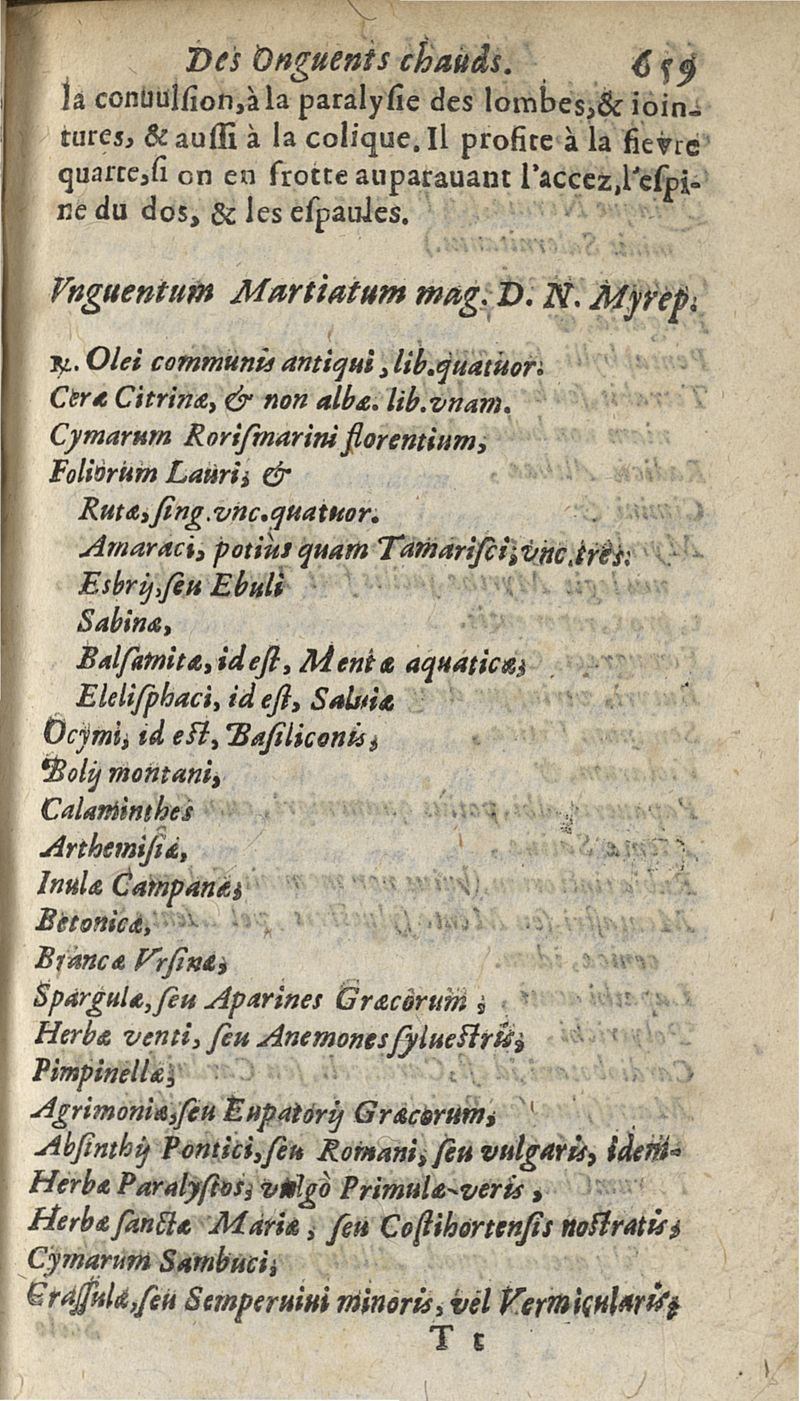 Des Onguents chauds. 659
la conuulſion, à la paralyſie des lombes, & ioin-
tures, & auſſi à la colique. Il profite à la fievre
quarte, ſi on en frotte auparauant l'accez, l'eſpi-
ne du dos, & les eſpaules.
Vnguentum Martiatum mag. D. N. Myrep.
℞. Olei communis antiqui, lib. quatuor.
Ceræ Citrinæ, & non albæ. lib. vnam.
Cymarum Roriſmarini florentium,
Foliorum Lauri, &
Rutæ, ſing. vnc. quatuor.
Amaraci, potiùs quam Tamariſci, vnc. tres.
Esbrij, ſeu Ebuli
Sabinæ,
Balſamitæ, id eſt, Mentæ aquaticæ,
Eleliſphaci, id eſt, Saluiæ
Ocymi, id eſt, Baſiliconis,
Bolij montani,
Calaminthes
Arthemiſiæ,
Inulæ Campanæ,
Betonicæ,
Brancæ Vrſinæ,
Spargulæ, ſeu Aparines Græcorum,
Herbæ venti, ſeu Anemones ſylueſtris,
Pimpinellæ,
Agrimoniæ, ſeu Eupatorij Græcorum,
Abſinthij Pontici, ſeu Romani, ſeu vulgaris, idem-
Herbæ Paralyſios, vulgò Primulæ-veris,
Herbæ ſanctæ Mariæ, ſeu Coſtihortenſis noſtratis,
Cymarum Sambuci,
Craſſulæ, ſeu Semperuiui minoris, vel Vermicularis,
T t